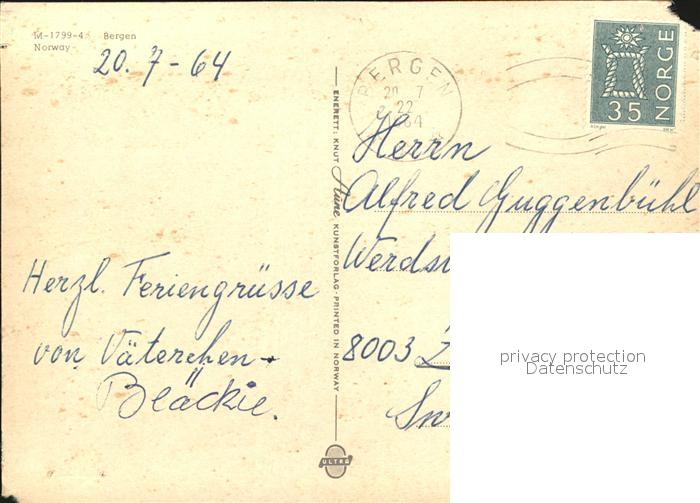 M-1799-4 Bergen
Norway
20. 7 - 64
BERGEN
20 7
22
64
NORGE
35
ENERETT: KNUT Aune KUNSTFORLAG · PRINTED IN NORWAY
Herrn
Alfred Guggenbühl
8003
Herzl. Feriengrüsse
von Väterchen +
Bläckie.
ULTRA
privacy protection
Datenschutz